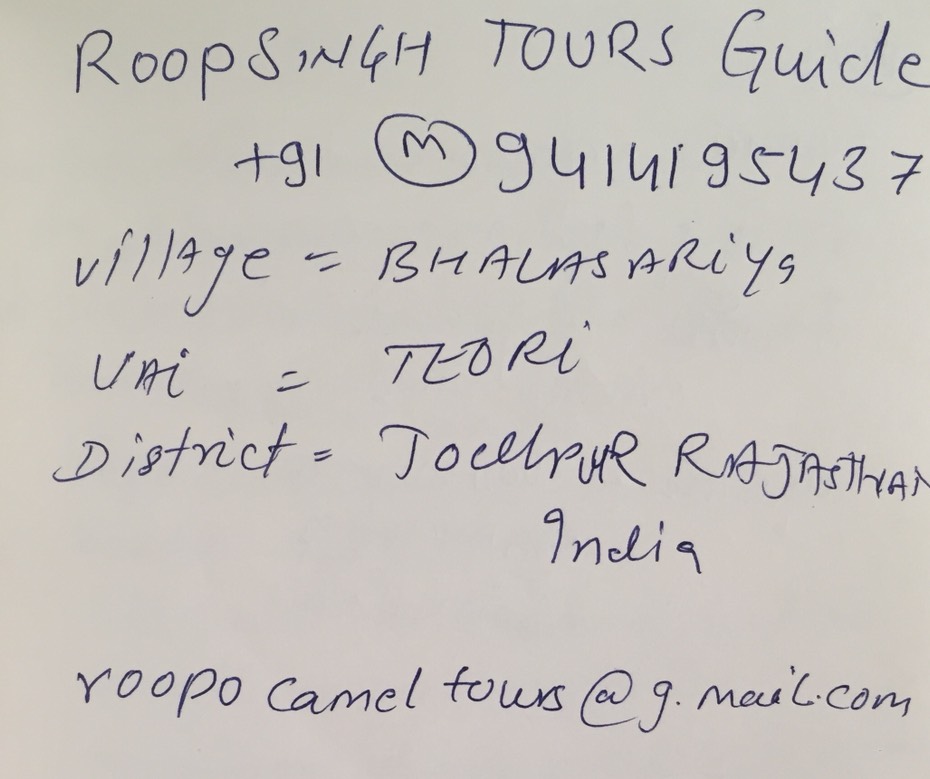 RoopSINGH TOURS Guide
+91 (M) 9414195437
village = BHALASARiYa
VAi = TEORi
District = Jodhpur RAJASTHAN
India
roopo camel tours@g.mail.com